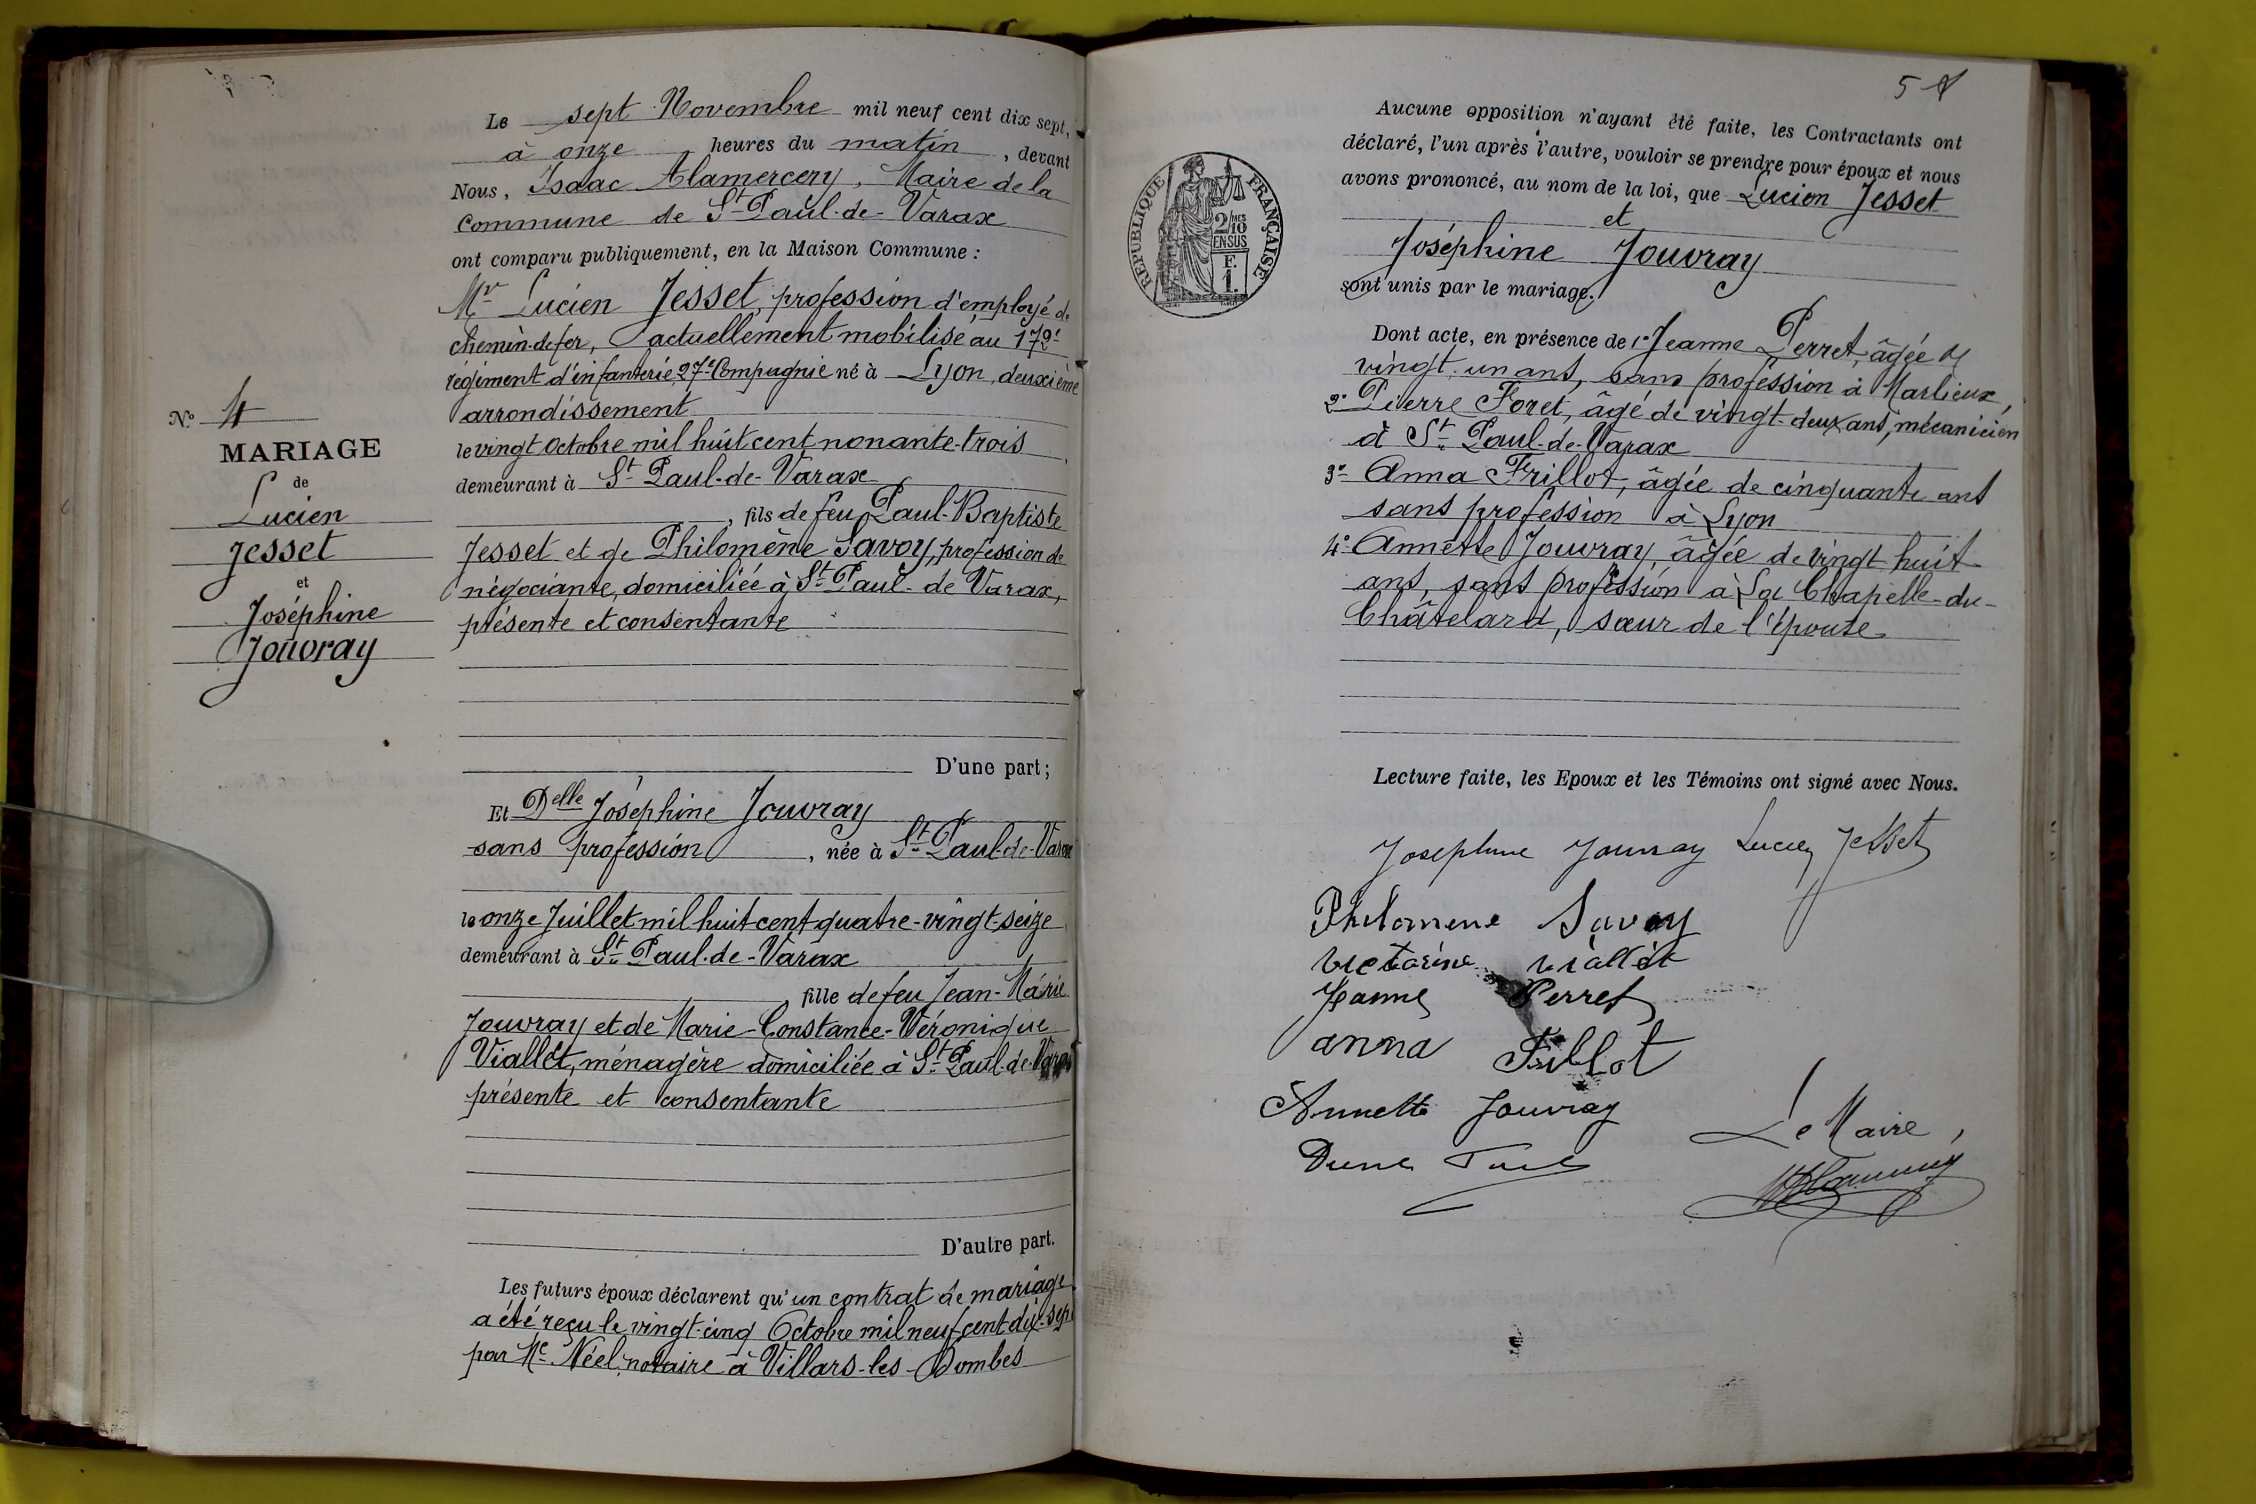 Le sept Novembre mil neuf cent dix sept,
à onze heures du matin, devant
Nous, Isaac Alamercery, Maire de la
Commune de St Paul-de-Varax
ont comparu publiquement, en la Maison Commune :
Mr Lucien Jesset, profession d'employé de
chemin de fer, actuellement mobilisé au 172e
régiment d'infanterie 27e Compagnie né à Lyon, deuxième
arrondissement
le vingt Octobre mil huit cent nonante-trois
demeurant à St Paul-de-Varax
, fils de feu Paul-Baptiste
Jesset et de Philomène Savoy, profession de
négociante, domiciliée à St Paul-de Varax,
présente et consentante
No 4
MARIAGE
de
Lucien
Jesset
et
Joséphine
Jouvray
D'une part ;
Et Delle Joséphine Jouvray
sans profession, née à St Paul-de-Varax
le onze Juillet mil huit cent quatre-vingt-seize
demeurant à St Paul-de-Varax
fille de feu Jean-Marie
Jouvray et de Marie-Constance-Véronique
Viallet, ménagère domiciliée à St Paul-de-Varax
présente et consentante
D'autre part.
Les futurs époux déclarent qu'un contrat de mariage
a été reçu le vingt-cinq Octobre mil neuf cent dix-sept
par Me Néel, notaire à Villars-les-Dombes
5
RÉPUBLIQUE FRANÇAISE
2/10
EN SUS
F.
1.
Aucune opposition n'ayant été faite, les Contractants ont
déclaré, l'un après l'autre, vouloir se prendre pour époux et nous
avons prononcé, au nom de la loi, que Lucien Jesset
et
Joséphine Jouvray
sont unis par le mariage.
Dont acte, en présence de 1° Jeanne Perret, âgée de
vingt-un ans, sans profession à Marlieux,
2° Pierre Foret, âgé de vingt-deux ans, mécanicien
à St Paul-de-Varax
3° Anna Frillot, âgée de cinquante ans
sans profession à Lyon
4° Annette Jouvray, âgée de vingt huit
ans, sans profession à La Chapelle-du-
Châtelard, sœur de l'épouse
Lecture faite, les Epoux et les Témoins ont signé avec Nous.
Josephine Jouvray Lucien Jesset
Philomene Savoy
Victorine Viallet
Jeanne Perret
anna Frillot
Annette Jouvray
Le Maire,